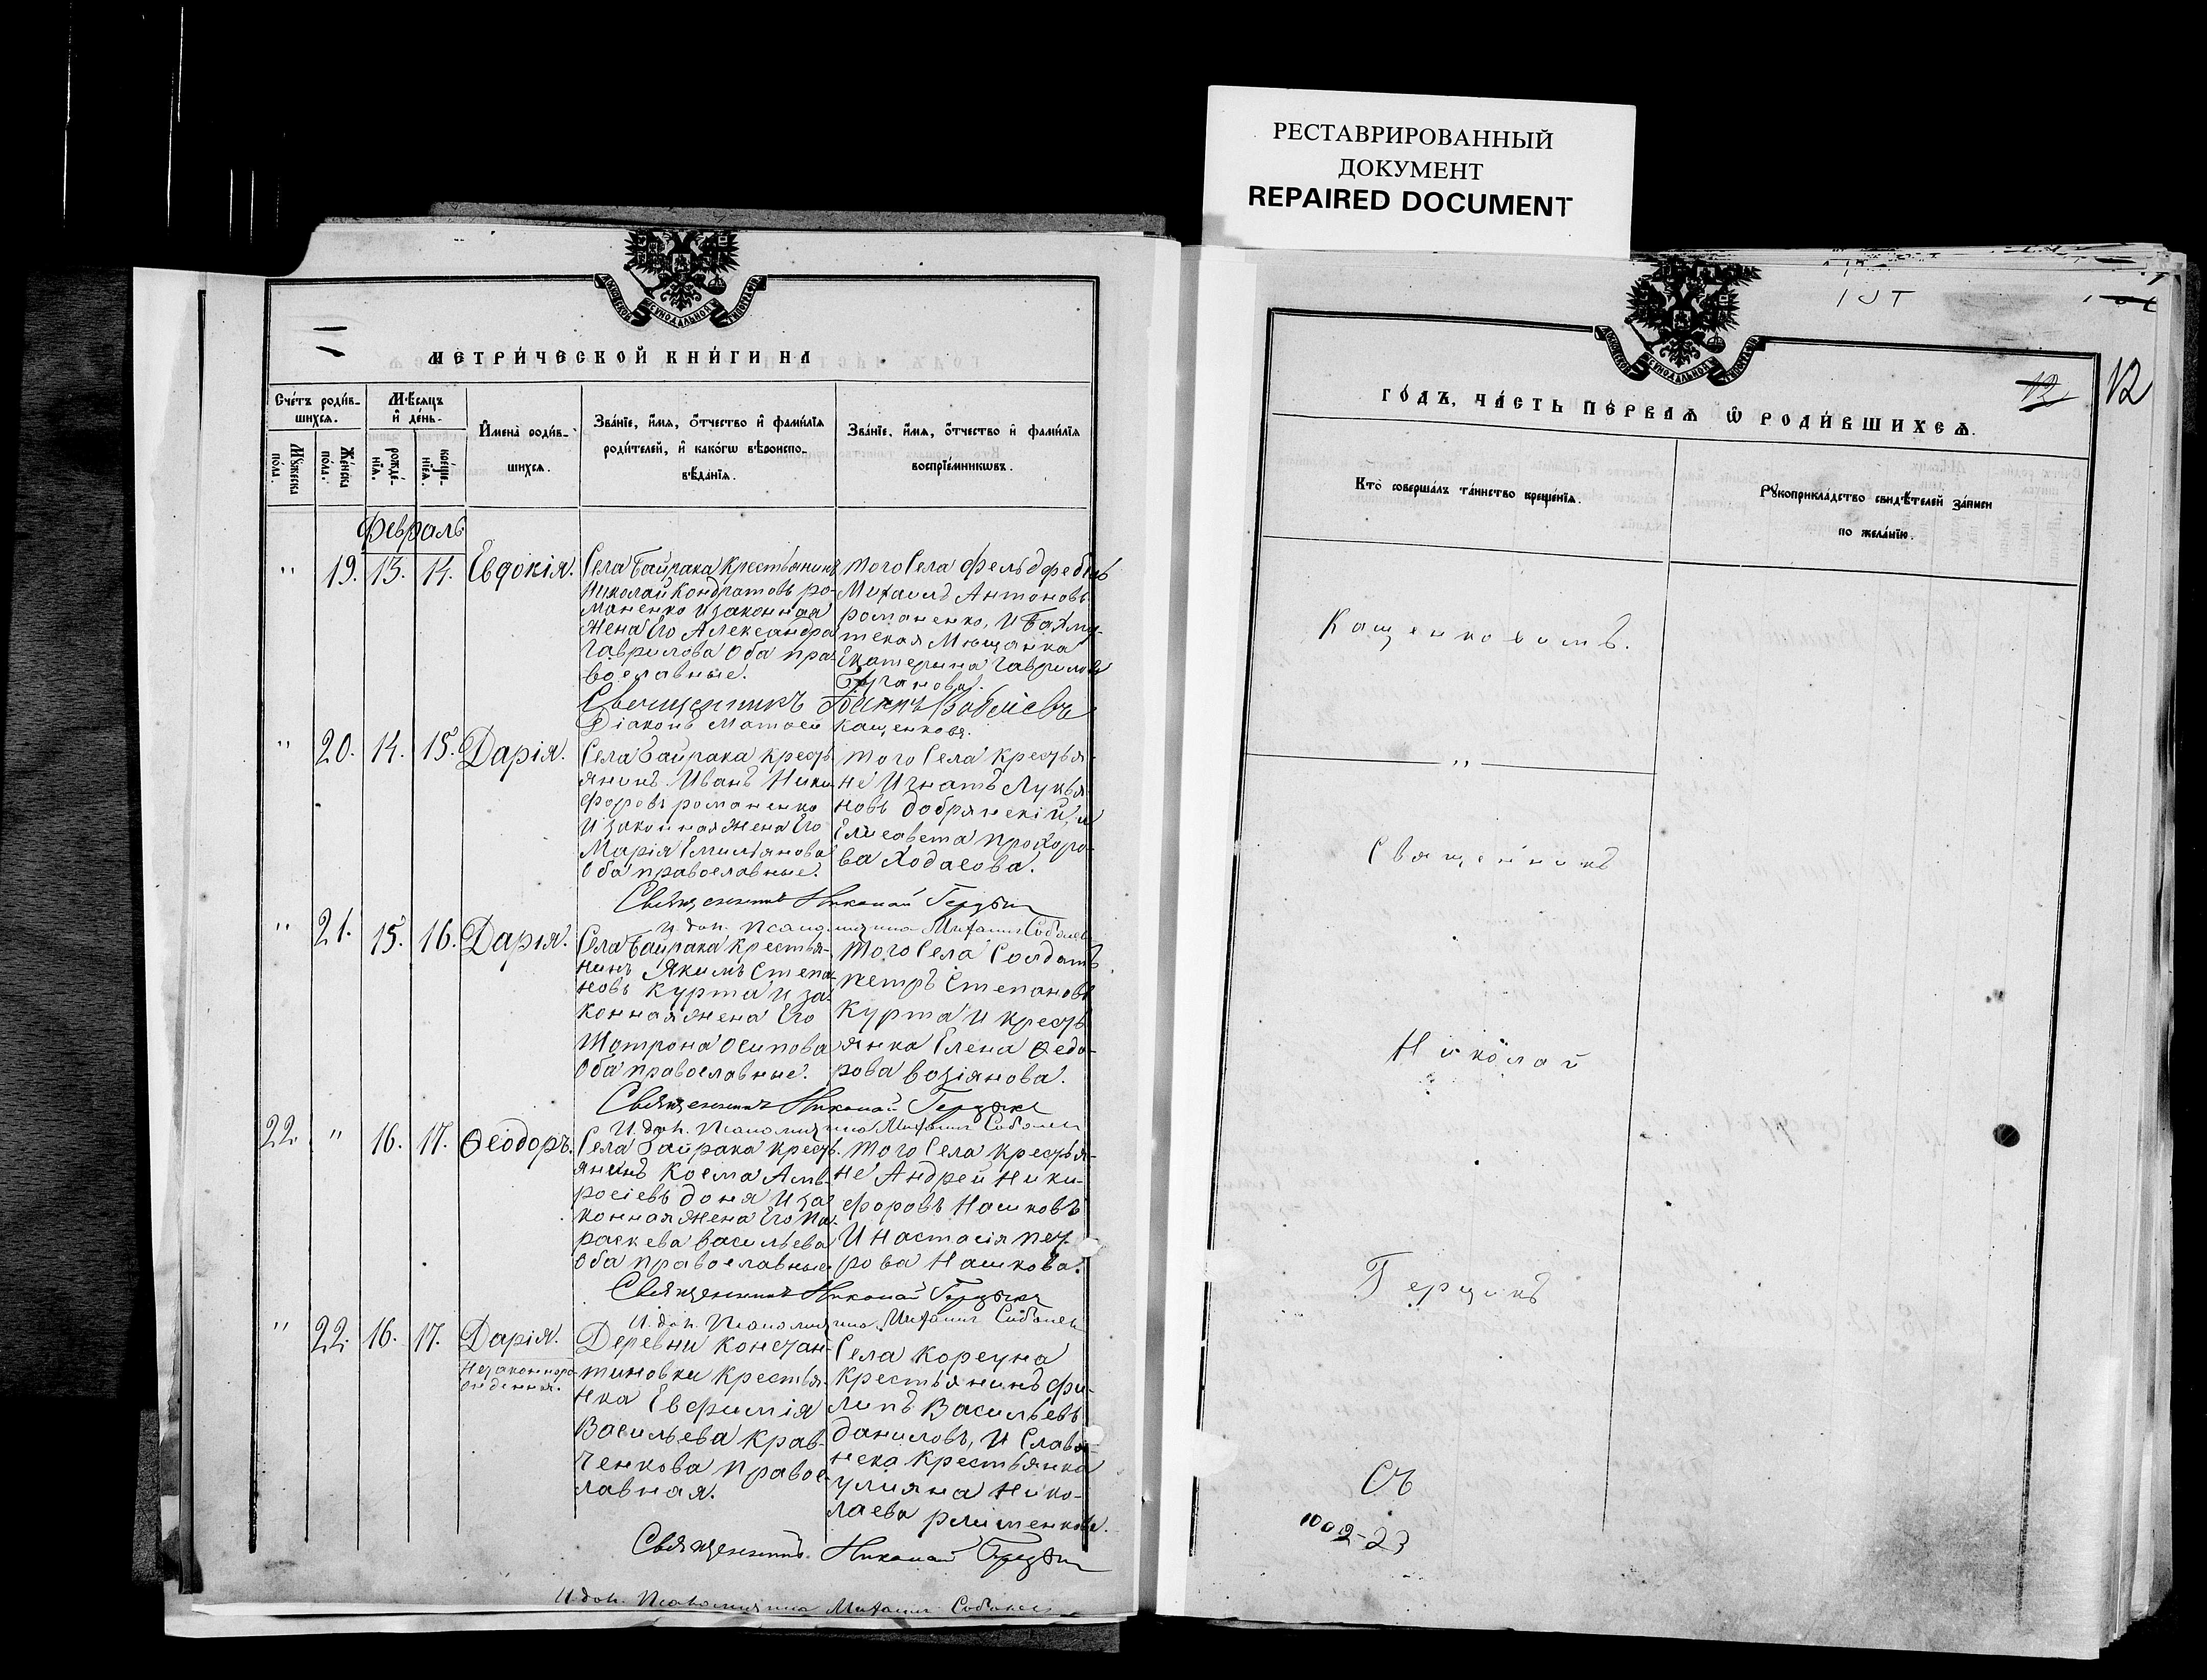 РЕСТАВРИРОВАННЫЙ
ДОКУМЕНТ
REPAIRED DOCUMENT
МОСКОВСКОЙ СѴНОДАЛЬНОЙ ТИПОГРАФІИ
МЕТРИ́ЧЕСКОЙ КНИ́ГИ НА
Сче́тъ роди́в-
шихся.
Му́жеска
пола.
Же́нска
пола.
Мѣ́сяцъ
и҆ де́нь.
рожде́-
нїя.
креще-
нїея.
И҆мена̀ роди́в-
шихся.
Зва́нїе, и҆́мя, ѻ҆́тчество и҆ фами́лїя
роди́телей, и҆ како́гѡ вѣроиспо-
вѣ́данїя.
Зва́нїе, и҆́мя, ѻ҆́тчество и҆ фами́лїя
воспрїе́мникѡвъ.
Февраль
" 19. 13. 14. Евдокія.
Села Байрака Крестьянинъ
Николай Кондратовъ Ро-
маненко и законная
жена Его Александра
Гаврилова Оба пра-
вославные.
того Села Фельдфебель
Михаилъ Антоновъ
романенко, и Бахму-
тская Мѣщанка
Екатерина Гаврилова
Священникъ
Діаконъ Матѳей Кащенковъ.
" 20. 14. 15. Дарія.
Села Байрака Кресть-
янинъ Иванъ Ники-
форовъ романенко
и законная жена Его
Марія Емильянова
Оба православные.
того Села Крестья-
не Игнатъ Лукья-
новъ Добрянскій, и
Елисавета Прохоро-
ва Ходасова.
Священникъ Николай Герцыкъ
И. доп. Псаломщика Михаилъ
" 21. 15. 16. Дарія.
Села Байрака Крестья-
нинъ Якимъ Степа-
новъ Курта и за-
конная жена Его
Матрона Осипова
Оба православные.
того Села Солдатъ
Петръ Степановъ
Курта и кресть-
янка Елена Ѳедо-
рова Возіянова.
Священникъ Николай Герцыкъ
И. доп. Псаломщика Михаилъ
22. " 16. 17. Ѳеодоръ.
Села Байрака Кресть-
янинъ Косма Амв-
росіевъ Доня и за-
конная жена Его Па-
раскева Васильева
Оба православные
того Села крестья-
не Андрей Ники-
форовъ Нашковъ
и Настасія Пет-
рова Нашкова.
Священникъ Николай Герцыкъ
И. доп. Псаломщика Михаилъ
" 22. 16. 17. Дарія.
Незаконноро-
жденная.
Деревни Констан-
тиновки Крестья-
нка Евфимія
Васильева Крав-
ченкова Правос-
лавная.
Села Корсуна
Крестьянинъ Фи-
липъ Васильевъ
Даниловъ, и Славя-
нска Крестьянка
Улияна Нико-
лаева
Священникъ Николай Герцыкъ
И. доп. Псаломщика Михаилъ
МОСКОВСКОЙ СѴНОДАЛЬНОЙ ТИПОГРАФІИ
12
12
ГО́ДЪ, ЧА́СТЬ ПЕ́РВАЯ Ѡ҆ РОДИ́ВШИХСЯ.
Кто̀ соверша́лъ та́инство креще́нїя.
Рꙋкоприкла́дство свидѣ́телей за́писи
по жела́нїю.
Кащенковымъ.
"
Священникъ
Николай
Герцыкъ
Съ